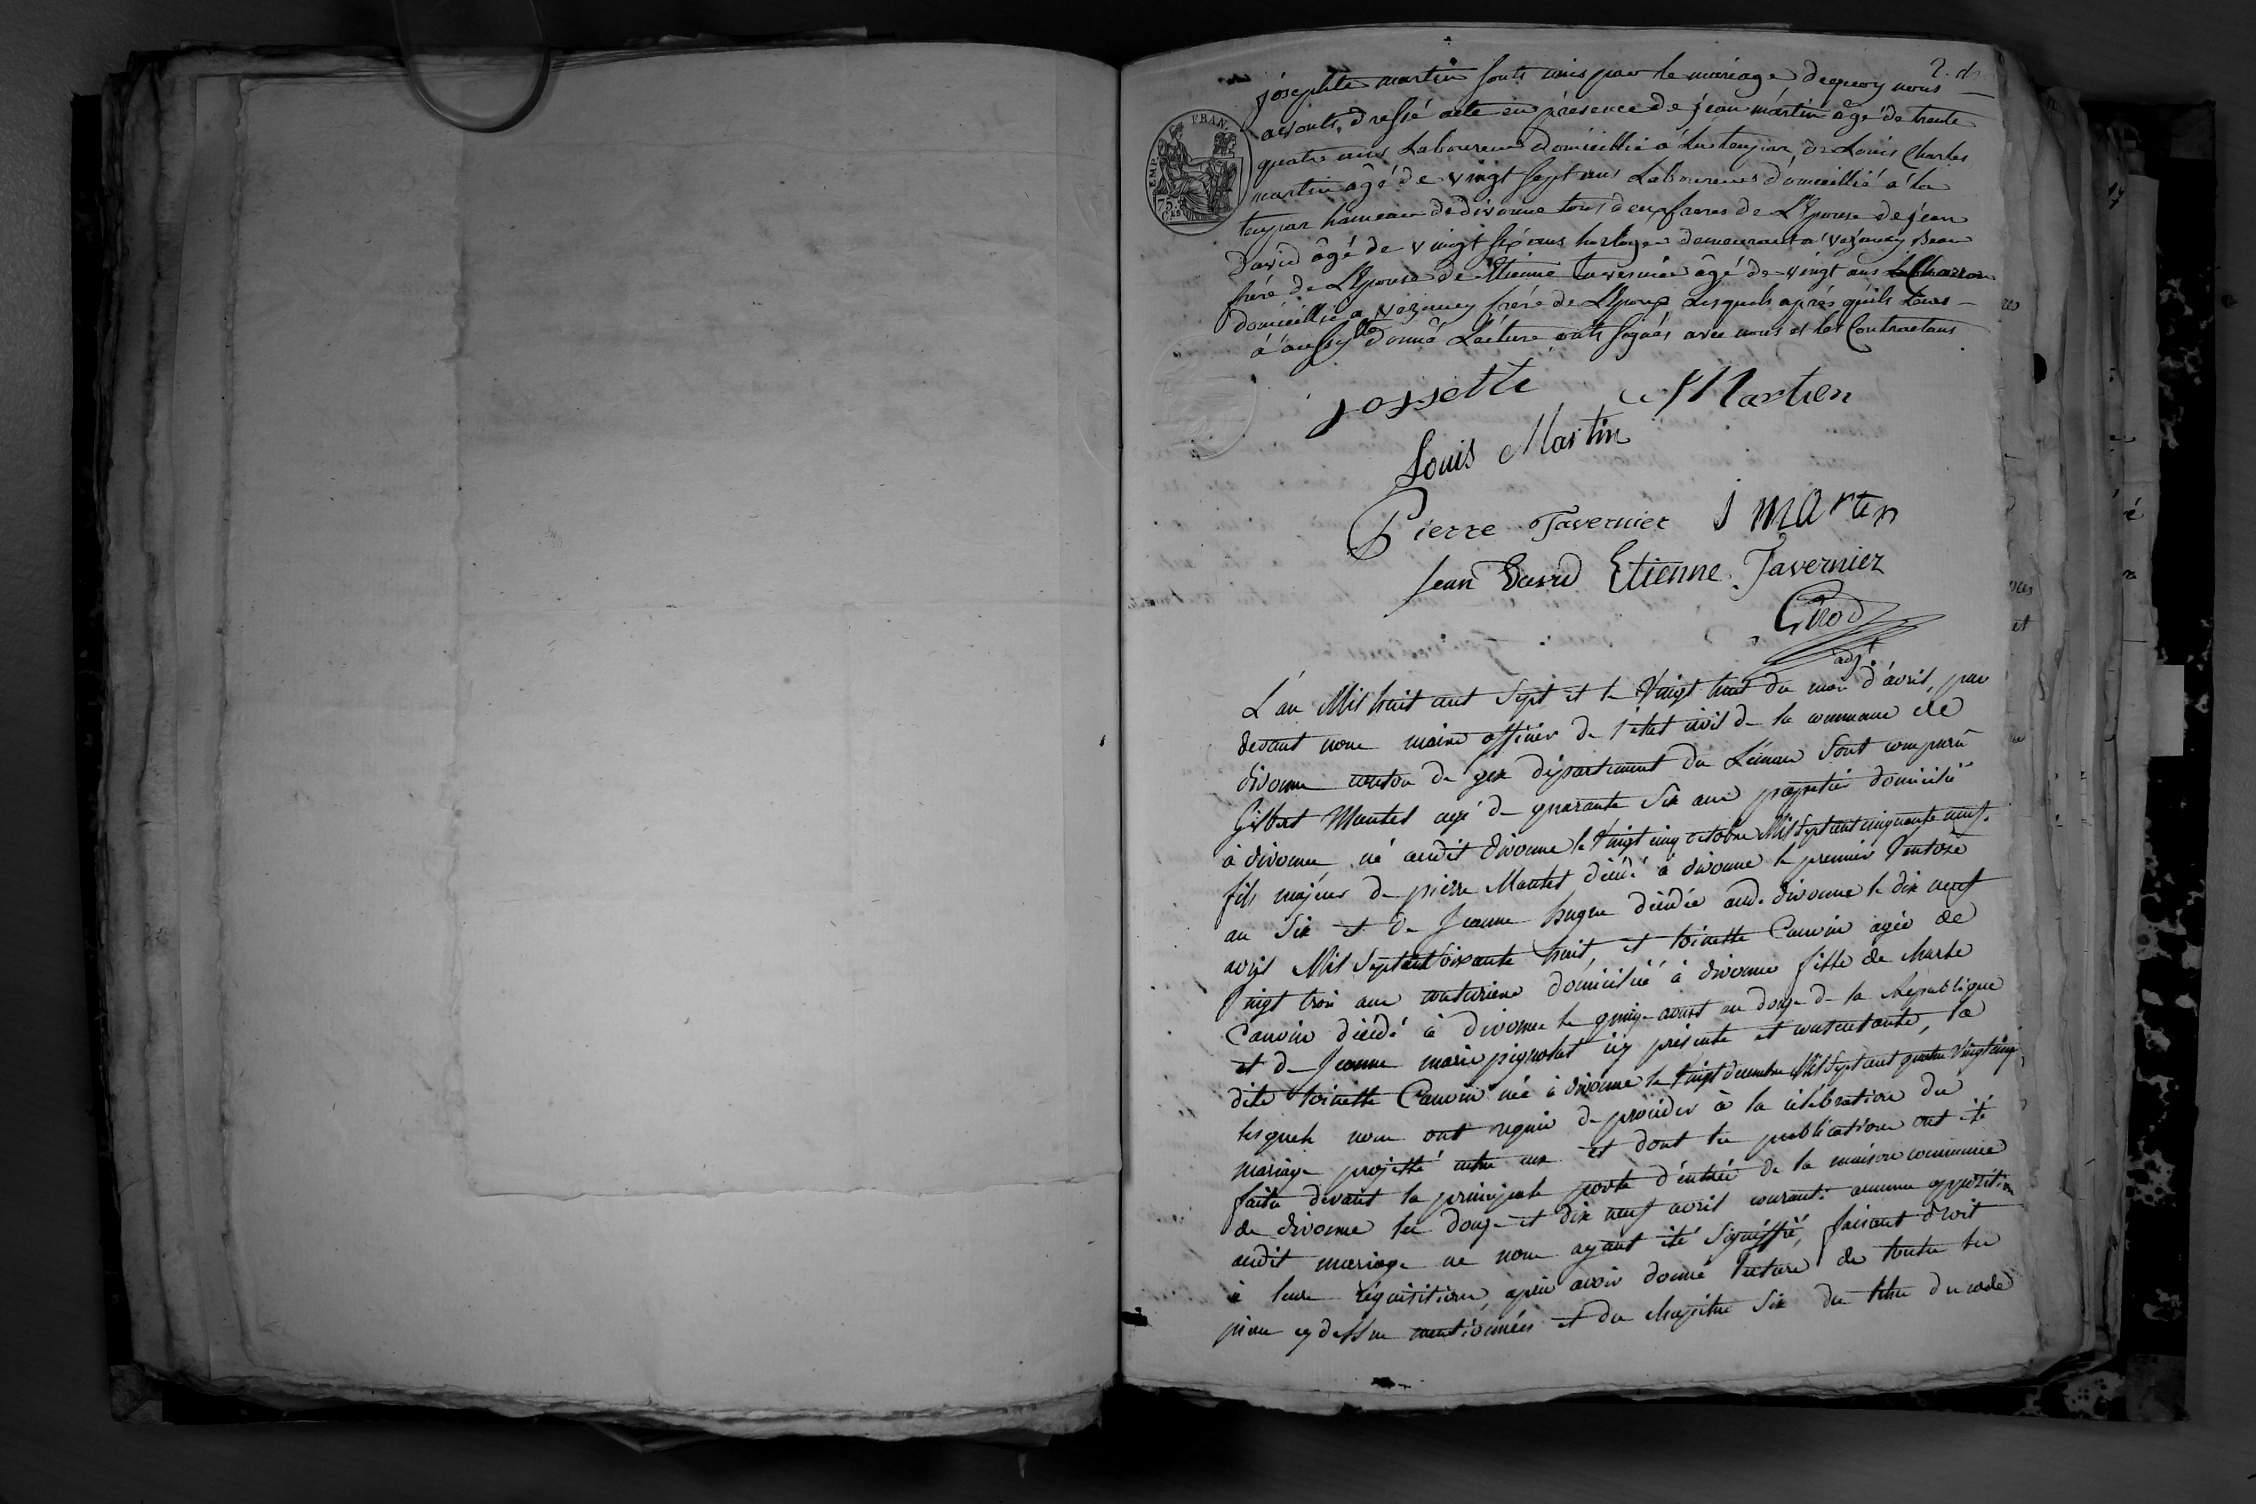 2. d.
josephte martin sont unis par le mariage dequoy nous
avonts dressé acte en présence de jean martin âgé de trente
quatre ans Laboureur domicillié á La tanjar, de Louis Charles
martin âgé de vingt sept ans Laboureur domicillié a la
tanjar hameau de divonne tous deux freres de L'Epouse de jean
David âgé de vingt six ans horloger demeurant a Vezancy Beau
frére de L'Epouse de Etienne tavernier âgé de vingt ans
domicillié a Vezancy frére de L'Epoux Lesquels aprés qu'ils Leurs
á aussy été donné Lécture onts signés avec nous et les Contractans
EMP. FRAN.
75.
jossette Martien
Louis Martin
Pierre Tavernier J martin
Jean David Etienne Tavernier
Girod
adjt
L'an Mil huit cent Sept et le Vingt huit du mois d'avril, par
devant nous maire officier de l'état civil de la commune de
divonne canton de gex département du Léman Sont comparu
Gilbert Mantel agé de quarante Six ans propriétaire domicilié
à divonne né audit divonne le Vingt cinq octobre Mil Sept cent cinquante neuf.
fils majeur de pierre Mantel décédé à divonne le premier Ventose
an Six et de Jeanne hugue décédée aud. divonne le dix neuf
avril Mil Sept cent Soixante huit, et toinette Cauvin agée de
Vingt trois ans couturiere domiciliée à divonne fille de Marke
Cauvin décédé à divonne le quinze août an douze de la République
et de Jeanne marie pignolet icy présente et consentante, la
dite toinette Cauvin née à divonne le Vingt decembre Mil Sept cent quatre Vingt cinq
lesquels nous ont requis de procéder à la célébration du
mariage projetté entre eux et dont les publications ont été
faites devant la principale porte d'entrée de la maison commune
de divonne les douze et dix neuf avril courant. aucune opposition
audit mariage ne nous ayant été Signiffié, faisant droit
à leurs réquisitions, après avoir donné lecture de toutes les
pieces cy dessus mentionnées et du chapitre Six du titre du code